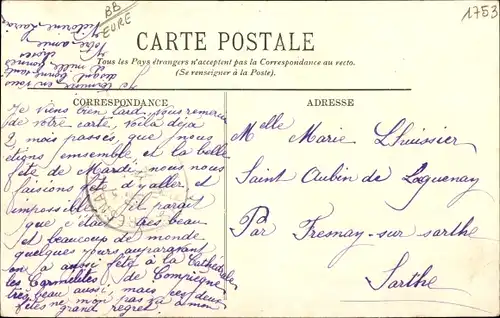 BB
EURE
1753
CARTE POSTALE
Tous les Pays étrangers n'acceptent pas la Correspondance au recto.
(Se renseigner à la Poste).
CORRESPONDANCE
ADRESSE
Je termine en vous
disant bonne santé
et mille bonnes
choses
Votre amie
Victorine
Je viens bien tard vous remercier
de votre carte, voilà déjà
2 mois passés que nous
étions ensemble et la belle
fête de Mardi, nous nous
faisions fête d'y aller et
impossible il paraît
que c'était très beau
et beaucoup de monde
quelques jours auparavant
on a aussi fêté à la Cathédrale
les Carmélites de Compiègne
très beau aussi, mais ces deux
fêtes ne mon pas
grand regret.
Melle Marie Lhuissier
Saint Aubin de Locquenay
Par Fresnay-sur-sarthe
Sarthe